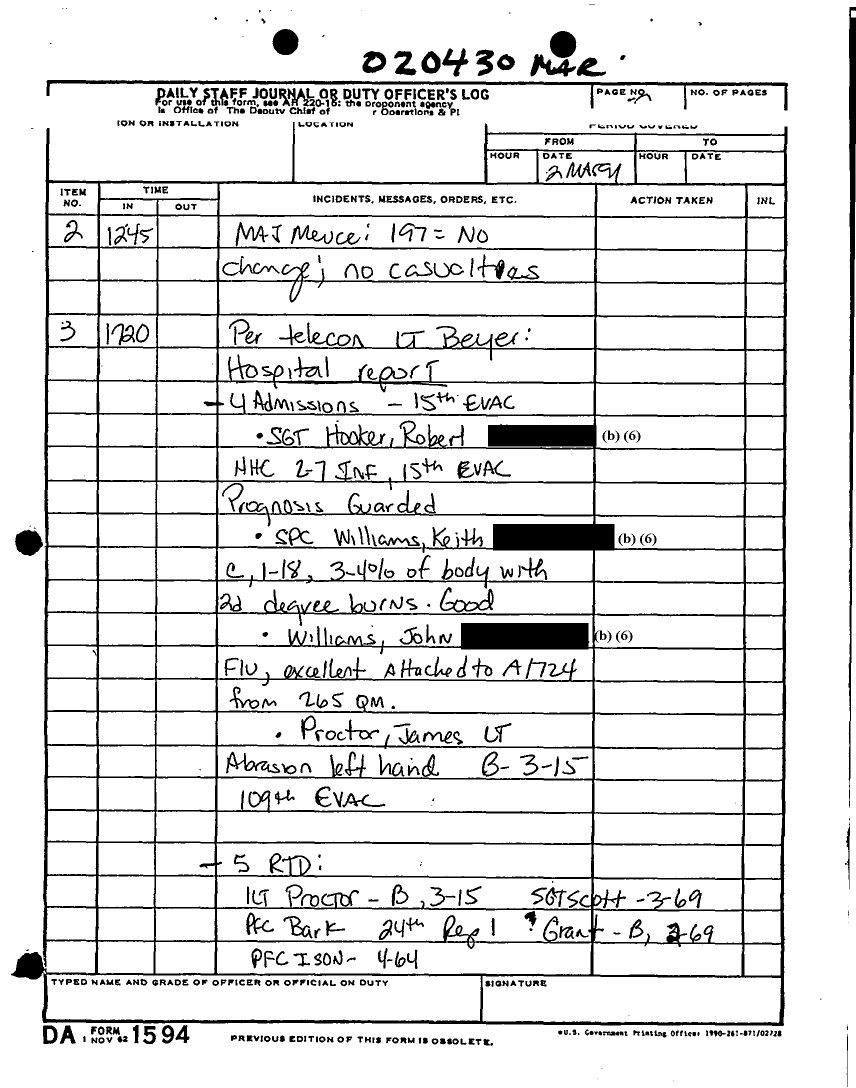 020430 MAR
DAILY STAFF JOURNAL OR DUTY OFFICER'S LOG
For use of this form, see AR 220-15; the proponent agency
is Office of The Deputy Chief of r Operations & Pl
PAGE NO.
NO. OF PAGES
ION OR INSTALLATION
LOCATION
PERIOD COVERED
FROM
TO
HOUR
DATE
HOUR
DATE
2 MAR91
ITEM NO.
TIME
IN
OUT
INCIDENTS, MESSAGES, ORDERS, ETC.
ACTION TAKEN
INL
2 1245 MAJ Meuce: 197 = NO
change; no casualties
3 1720 Per telecon LT Beyer:
Hospital report
- 4 Admissions - 15th EVAC
• SGT Hooker, Robert (b) (6)
HHC 2-7 INF, 15th EVAC
Prognosis Guarded
• SPC Williams, Keith (b) (6)
C, 1-18, 3-4% of body with
2d degree burns. Good
• Williams, John (b) (6)
FIU, excellent Attached to A/724
from 265 QM.
• Proctor, James LT
Abrasion left hand B-3-15
109th EVAC
- 5 RTD:
1LT Proctor - B, 3-15 SGT Scott - 3-69
PFC Bark 24th Repl Grant - B, 3-69
PFC ISON - 4-64
TYPED NAME AND GRADE OF OFFICER OR OFFICIAL ON DUTY
SIGNATURE
DA FORM 1 NOV 62 1594
PREVIOUS EDITION OF THIS FORM IS OBSOLETE.
*U.S. Government Printing Office: 1990-261-871/02728